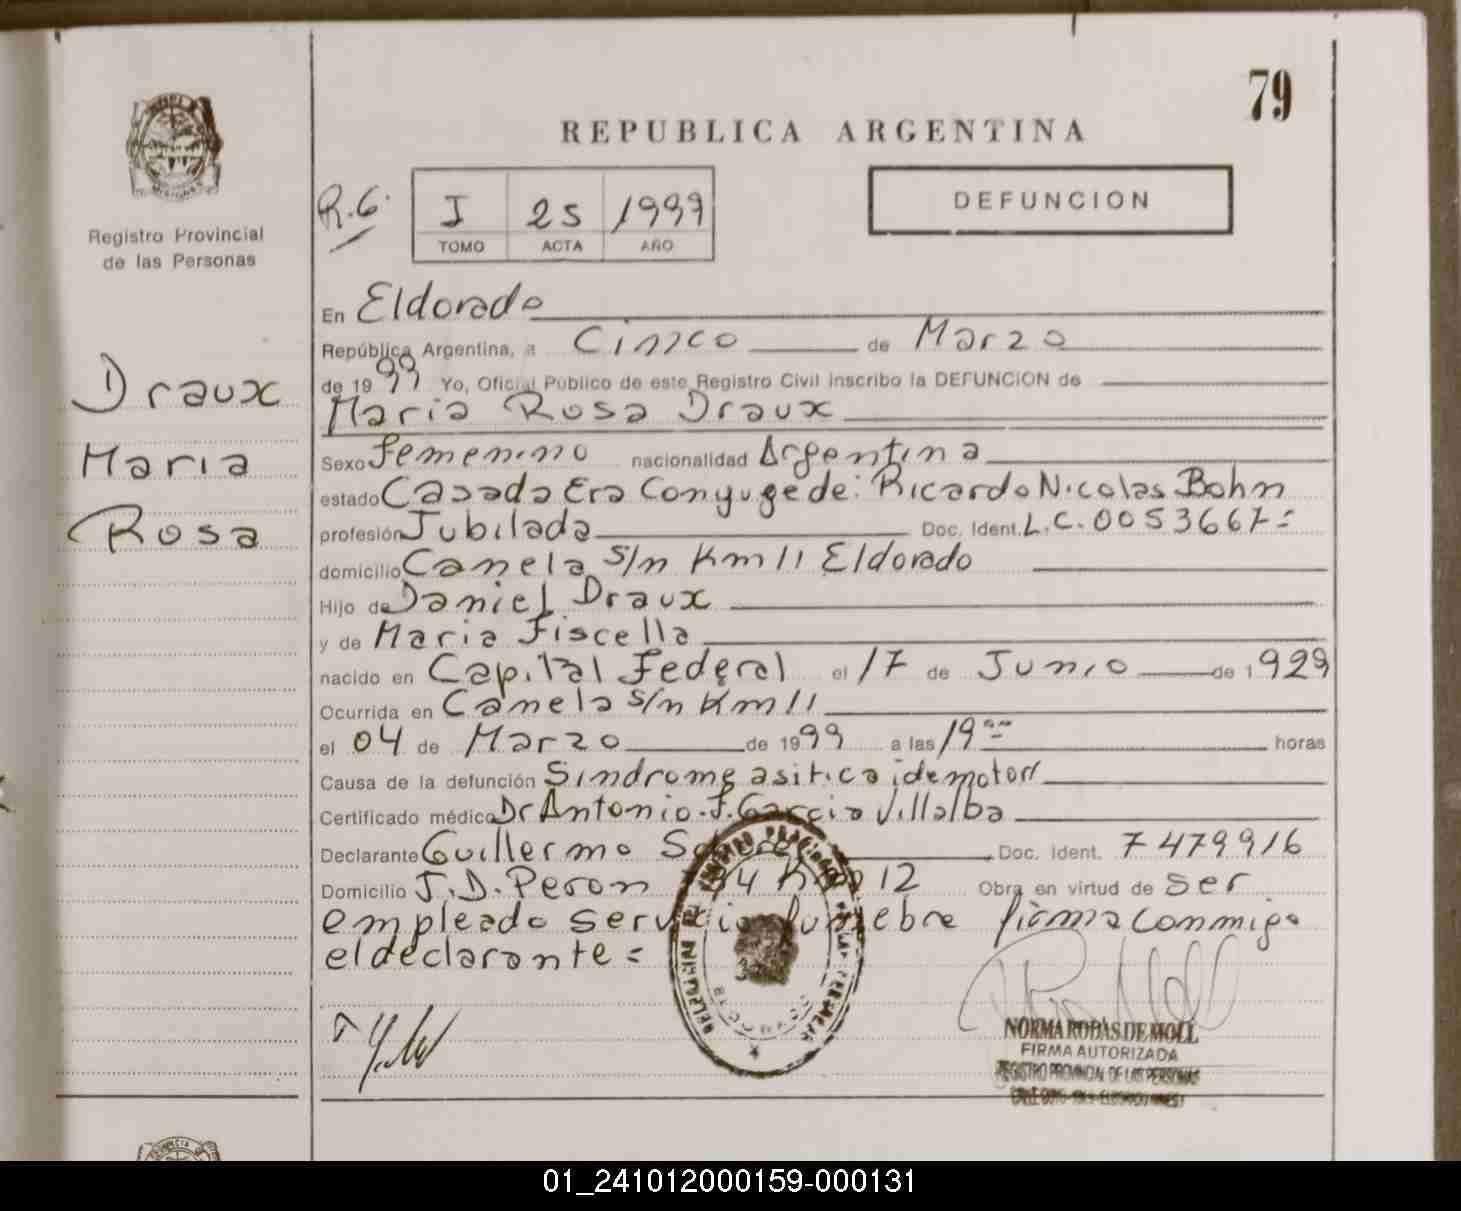 79
REPUBLICA ARGENTINA
MISIONES
Registro Provincial
de las Personas
R.G.
I 25 1999
TOMO ACTA AÑO
DEFUNCION
Draux
Maria
Rosa
En Eldorado
República Argentina, a Cinco de Marzo
de 1999 Yo, Oficial Público de este Registro Civil inscribo la DEFUNCION de
Maria Rosa Draux
Sexo femenino nacionalidad Argentina
estado Casada Era Conyuge de: Ricardo Nicolas Bohn
profesión Jubilada Doc. Ident. L.C. 0053667=
domicilio Canela s/n Km 11 Eldorado
Hijo de Daniel Draux
y de Maria Fiscella
nacido en Capital Federal el 17 de Junio de 1929
Ocurrida en Canela s/n Km 11
el 04 de Marzo de 1999 a las 19 horas
Causa de la defunción Sindrome
Certificado médico Dr Antonio. F. Garcia Villalba
Declarante Guillermo Doc. Ident. 7479916
Domicilio J. D. Peron Km 12 Obra en virtud de ser
empleado servicio funebre firma conmigo
el declarante =
NORMA RODAS DE MOLL
FIRMA AUTORIZADA
REGISTRO PROVINCIAL DE LAS PERSONAS
01_241012000159-000131